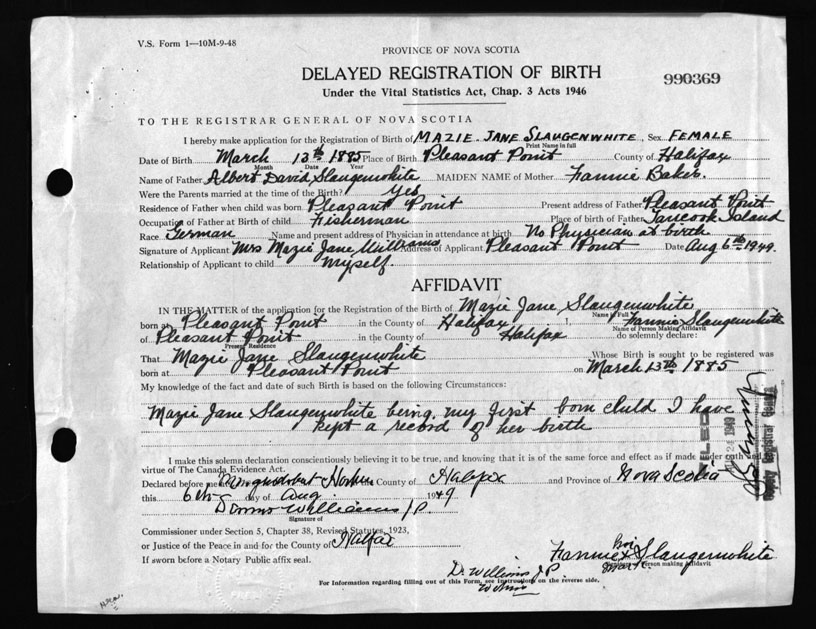 V.S. Form 1—10M-9-48
PROVINCE OF NOVA SCOTIA
DELAYED REGISTRATION OF BIRTH
990369
Under the Vital Statistics Act, Chap. 3 Acts 1946
TO THE REGISTRAR GENERAL OF NOVA SCOTIA
I hereby make application for the Registration of Birth of MAZIE JANE SLAUGENWHITE, Sex FEMALE
Print Name in full
Date of Birth March 13th 1885 Place of Birth Pleasant Point County of Halifax
Month Date Year
Name of Father Albert David Slaugenwhite MAIDEN NAME of Mother Fannie Baker.
Were the Parents married at the time of the Birth? Yes
Residence of Father when child was born Pleasant Point Present address of Father Pleasant Point
Occupation of Father at Birth of child Fisherman Place of birth of Father Tancook Island
Race German Name and present address of Physician in attendance at birth No Physician at birth
Signature of Applicant Mrs Mazie Jane Williams Address of Applicant Pleasant Point Date Aug 6th 1949.
Relationship of Applicant to child myself.
AFFIDAVIT
IN THE MATTER of the application for the Registration of the Birth of Mazie Jane Slaugenwhite
Name in Full
born at Pleasant Point in the County of Halifax I, Fannie Slaugenwhite
Name of Person Making Affidavit
of Pleasant Point in the County of Halifax do solemnly declare:
Present Residence
That Mazie Jane Slaugenwhite Whose Birth is sought to be registered was
born at Pleasant Point on March 13th 1885
My knowledge of the fact and date of such Birth is based on the following Circumstances:
Mazie Jane Slaugenwhite being my first born child I have
kept a record of her birth
I make this solemn declaration conscientiously believing it to be true, and knowing that it is of the same force and effect as if made under oath and
virtue of The Canada Evidence Act.
Declared before me at County of Halifax and Province of Nova Scotia
this 6th day of Aug. 1949
Williams J.P.
Signature of
Commissioner under Section 5, Chapter 38, Revised Statutes, 1923,
or Justice of the Peace in and for the County of Halifax
If sworn before a Notary Public affix seal.
Fannie X Slaugenwhite
mark
Person making Affidavit
D. Williams J P
For Information regarding filling out of this Form, see Instructions on the reverse side.